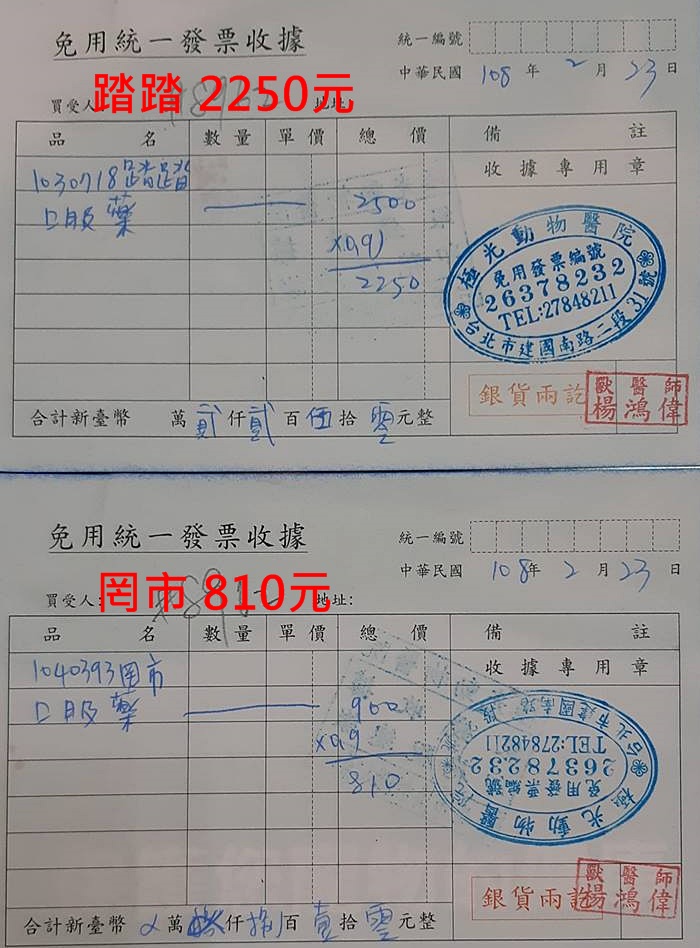 免用統一發票收據
統一編號
中華民國 108 年 2 月 23 日
踏踏 2250元
買受人 地址
品 名 數量 單價 總 價 備 註
1030718踏踏 收據專用章
口服藥 2500
x0.9
2250
極光動物醫院
免用發票編號
26378232
TEL:27848211
台北市建國南路二段31號
銀貨兩訖
獸醫師
楊鴻偉
合計新臺幣 萬 貳 仟 貳 百 伍 拾 零 元整
免用統一發票收據
統一編號
中華民國 108 年 2 月 23 日
罔市 810元
買受人: 地址:
品 名 數量 單價 總 價 備 註
1040393罔市 收據專用章
口服藥 900
x0.9
810
極光動物醫院
免用發票編號
26378232
TEL:27848211
台北市建國南路
銀貨兩訖
獸醫師
楊鴻偉
合計新臺幣 萬 仟 捌 百 壹 拾 零 元整